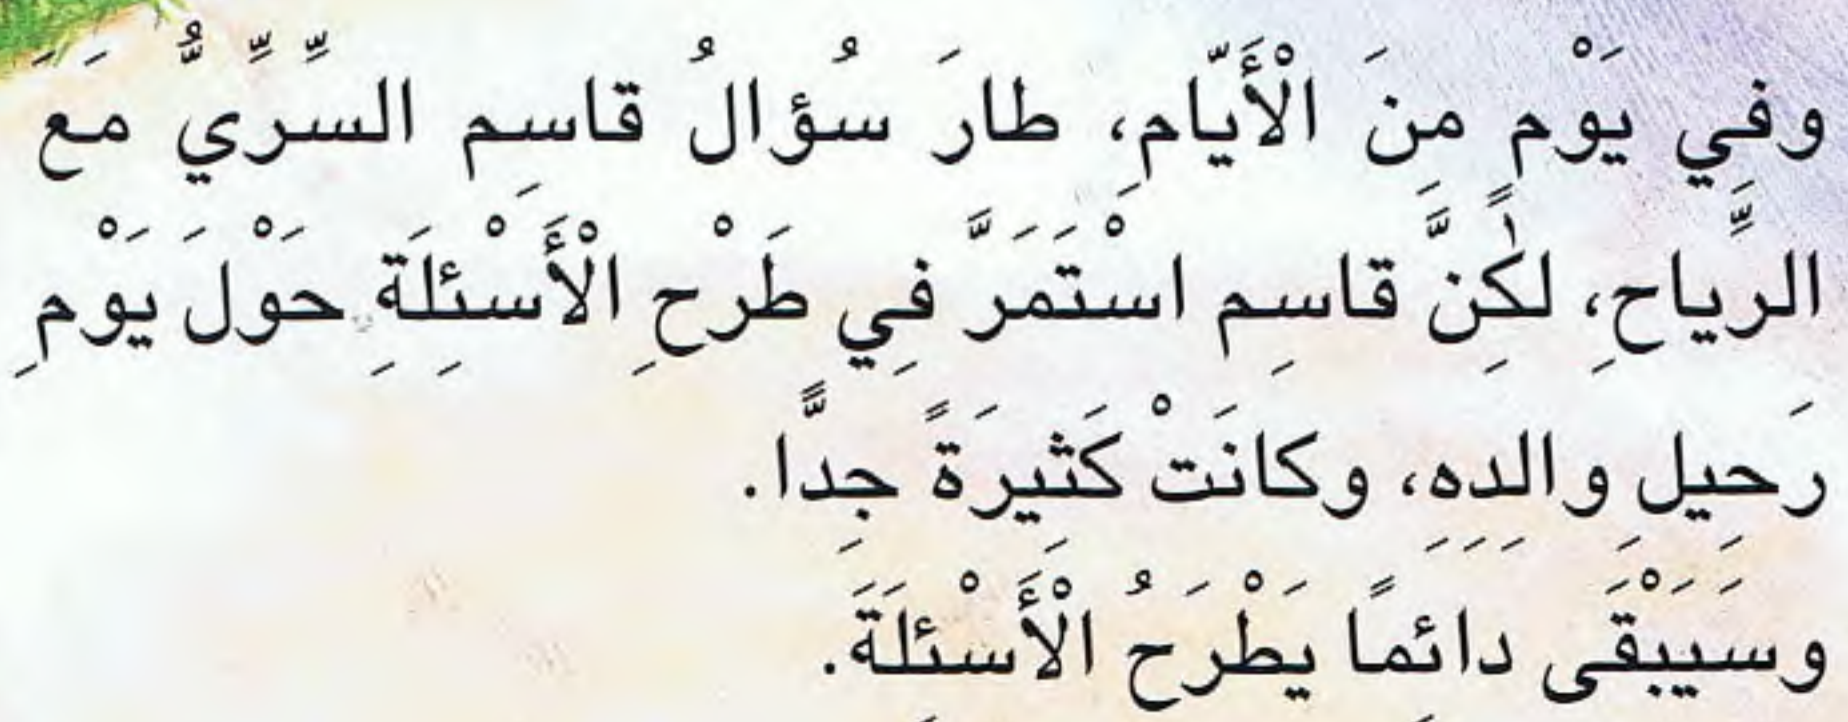 وفِي يَوْمٍ مِنَ الْأَيّامِ، طارَ سُؤالُ قاسِم السِّرِّيُّ مَعَ
الرِّياحِ، لٰكِنَّ قاسِم اسْتَمَرَّ فِي طَرْحِ الْأَسْئِلَةِ حَوْلَ يَوْمِ
رَحِيلِ والِدِهِ، وكانَتْ كَثِيرَةً جِدًّا.
وسَيَبْقَى دائِمًا يَطْرَحُ الْأَسْئِلَةَ.